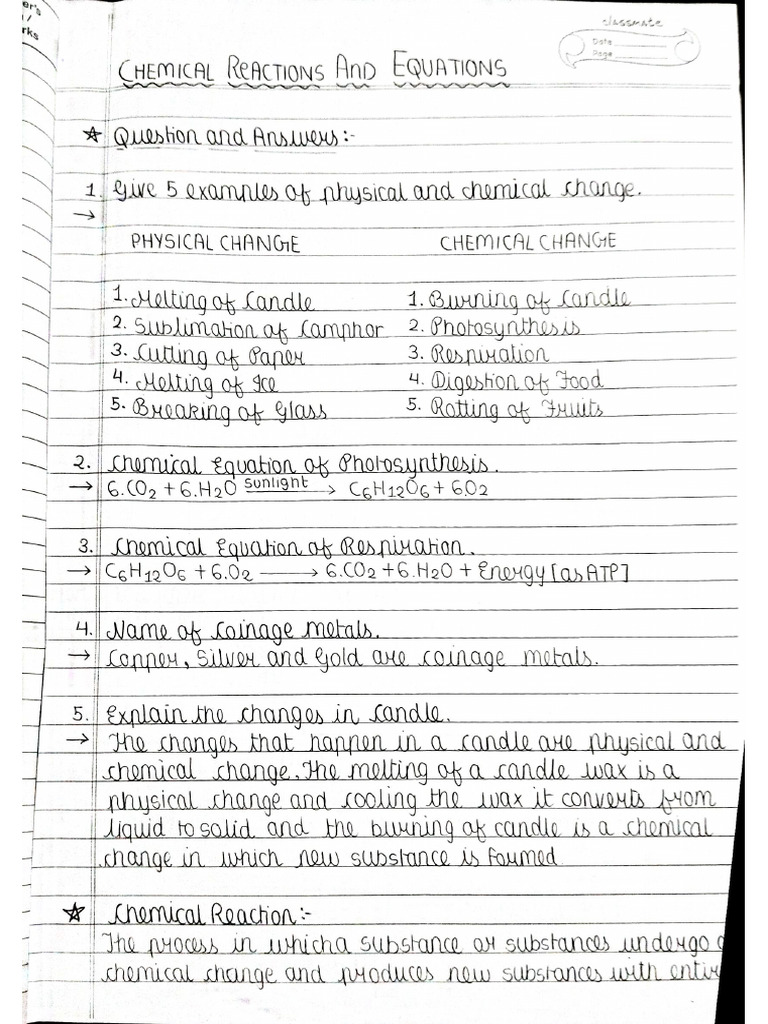 er's
/
rks
classmate
Date
Page
CHEMICAL REACTIONS AND EQUATIONS
☆ Question and Answers:-
1. Give 5 examples of physical and chemical change.
→
PHYSICAL CHANGE CHEMICAL CHANGE
1. Melting of Candle 1. Burning of Candle
2. Sublimation of Camphor 2. Photosynthesis
3. Cutting of Paper 3. Respiration
4. Melting of Ice 4. Digestion of Food
5. Breaking of Glass 5. Rotting of Fruits
2. Chemical Equation of Photosynthesis.
→ 6.CO2 + 6.H2O sunlight → C6H12O6 + 6O2
3. Chemical Equation of Respiration.
→ C6H12O6 + 6.O2 → 6.CO2 + 6.H2O + Energy [as ATP]
4. Name of Coinage Metals.
→ Copper, Silver and Gold are coinage metals.
5. Explain the changes in Candle.
→ The changes that happen in a candle are physical and
chemical change. The melting of a candle wax is a
physical change and cooling the wax it converts from
liquid to solid and the burning of candle is a chemical
change in which new substance is formed
☆ Chemical Reaction:-
The process in which a substance or substances undergo
chemical change and produces new substances with entir